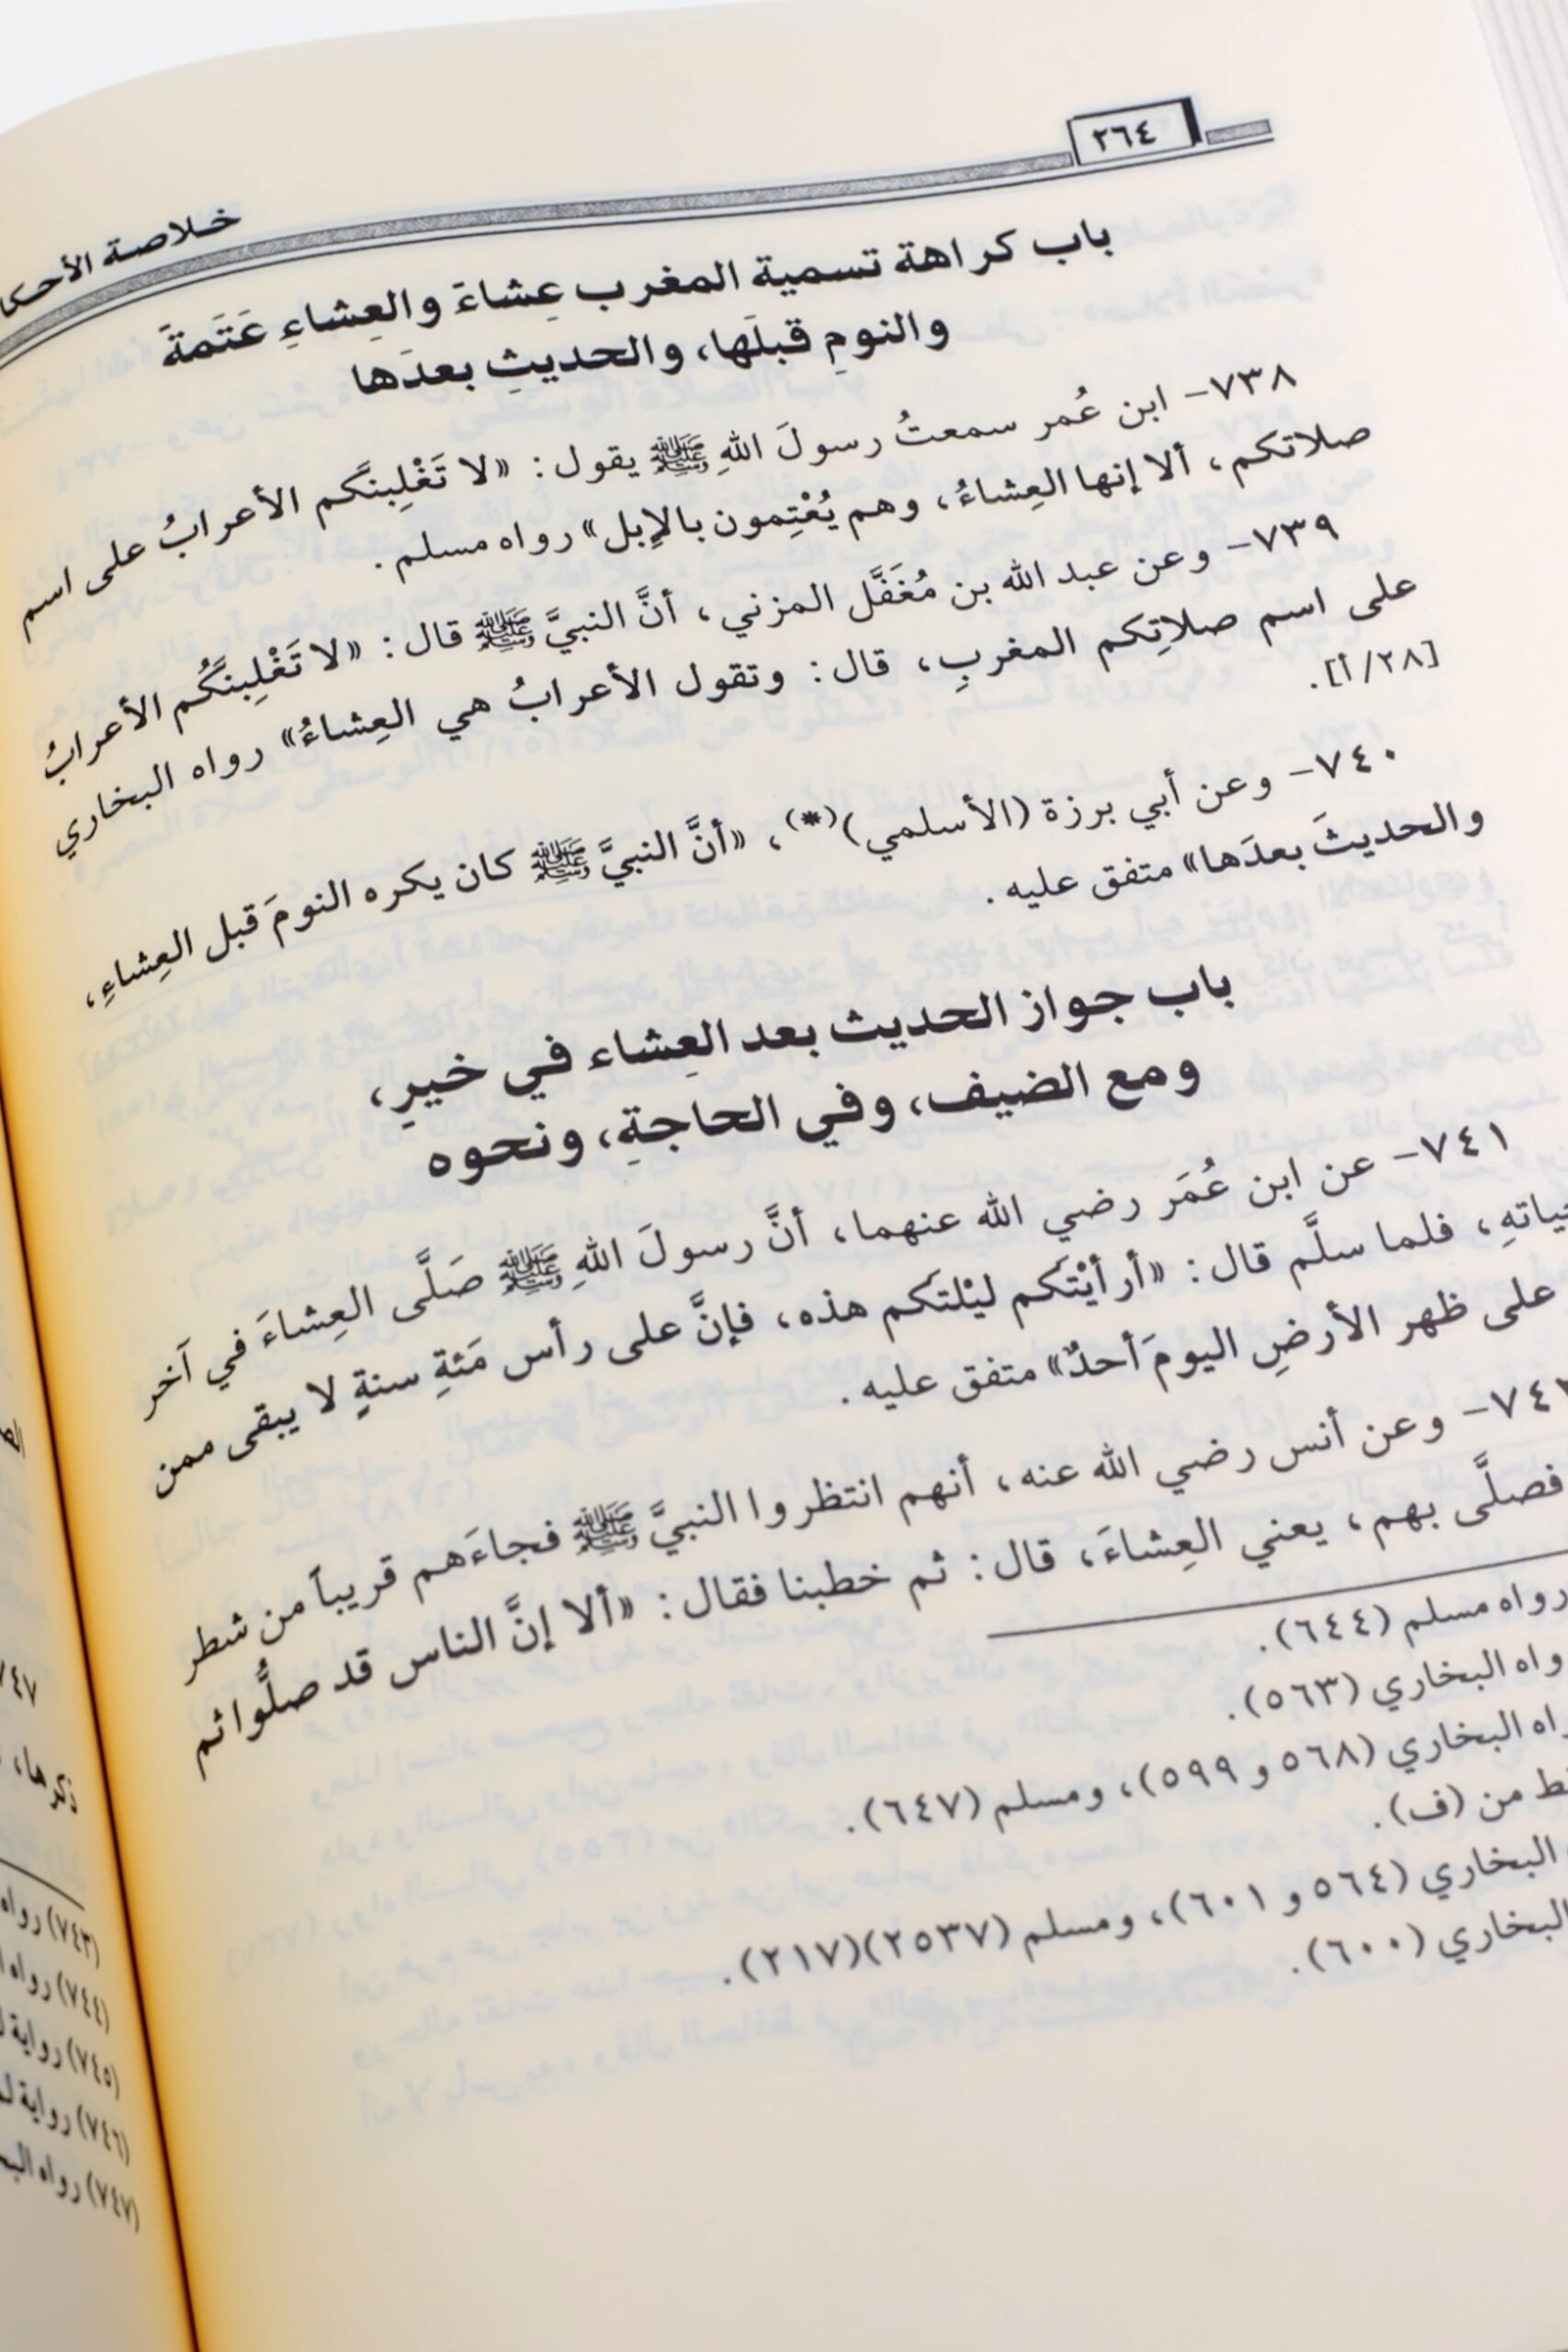 ٢٦٤
خلاصة
باب كراهة تسمية المغرب عِشاءَ والعِشاءِ عَتَمةَ
والنومِ قبلَها، والحديثِ بعدَها
٧٣٨- ابن عُمر سمعتُ رسولَ اللهِ ﷺ يقول: «لا تَغْلِبنَّكم الأعرابُ على اسم
صلاتكم، ألا إنها العِشاءُ، وهم يُعْتِمون بالإبل» رواه مسلم.
٧٣٩- وعن عبد الله بن مُغَفَّل المزني، أنَّ النبيَّ ﷺ قال: «لا تَغْلِبنَّكُم الأعرابُ
على اسم صلاتِكم المغربِ، قال: وتقول الأعرابُ هي العِشاءُ» رواه البخاري
[٢٨/أ].
٧٤٠- وعن أبي برزة (الأسلمي)(*)، «أنَّ النبيَّ ﷺ كان يكره النومَ قبل العِشاءِ،
والحديثَ بعدَها» متفق عليه.
باب جواز الحديث بعد العِشاء في خيرِ،
ومع الضيف، وفي الحاجةِ، ونحوه
٧٤١- عن ابن عُمَر رضي الله عنهما، أنَّ رسولَ اللهِ ﷺ صَلَّى العِشاءَ في آخر
فلما سلَّم قال: «أرأيْتَكم ليْلتَكم هذه، فإنَّ على رأس مَئةِ سنةٍ لا يبقى ممن
على ظهر الأرضِ اليومَ أحدٌ» متفق عليه.
وعن أنس رضي الله عنه، أنهم انتظروا النبيَّ ﷺ فجاءَهم قريباً من شطر
فصلَّى بهم، يعني العِشاءَ، قال: ثم خطبنا فقال: «ألا إنَّ الناس قد صلُّوا ثم
رواه مسلم (٦٤٤).
البخاري (٥٦٣).
البخاري (٥٦٨ و ٥٩٩)، ومسلم (٦٤٧).
من (ف).
البخاري (٥٦٤ و ٦٠١)، ومسلم (٢٥٣٧)(٢١٧).
البخاري (٦٠٠).
ذكرها،
(٧٤٣) رواه
(٧٤٤) رواه
(٧٤٥) رواية
(٧٤٦) رواية
(٧٤٧) رواه